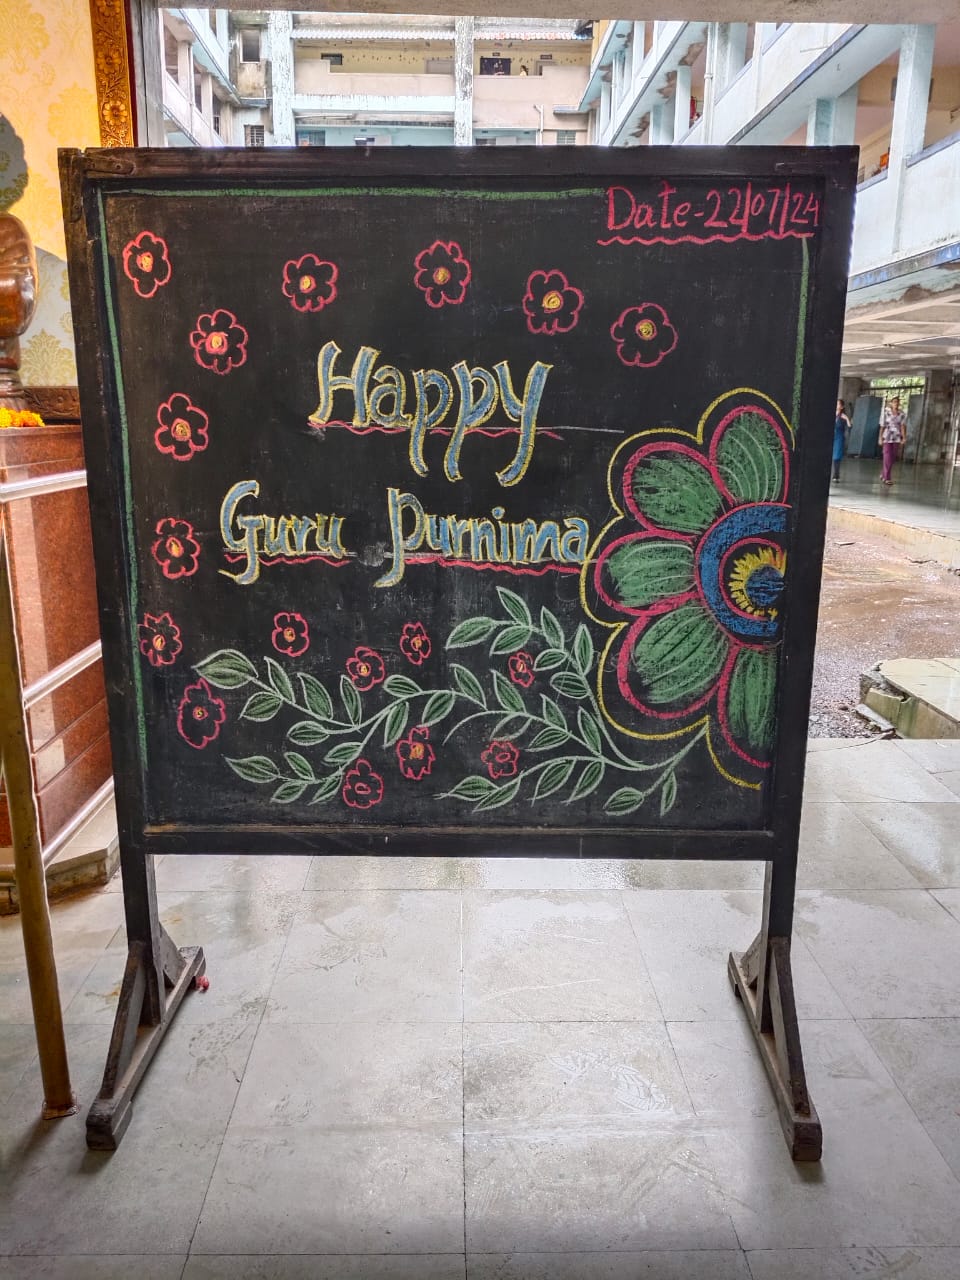 Date-22/07/24
Happy
Guru Purnima